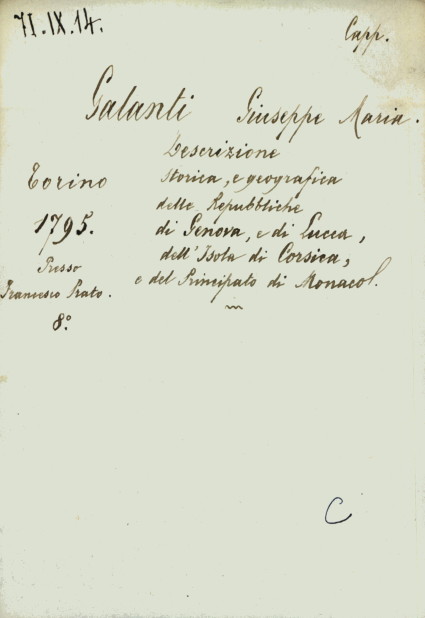 71.IX.14.
Capp.
Galanti Giuseppe Maria.
Descrizione
storica, e geografica
delle Repubbliche
di Genova, e di Lucca,
dell'Isola di Corsica,
e del Principato di Monacol.
Torino
1795.
Presso
Francesco Prato.
8.º
C